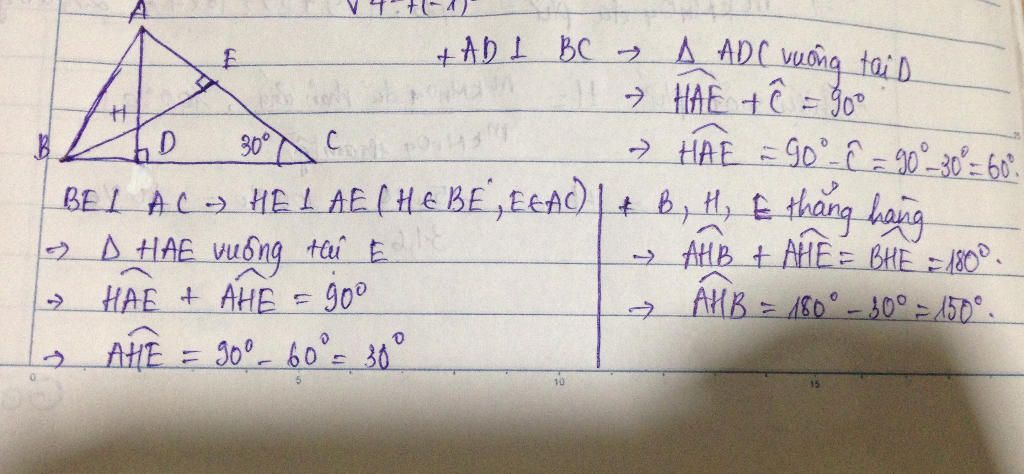 √4²+(-1)²
A
E
H
B
D
30°
C
+ AD ⊥ BC → Δ ADC vuông tại D
→ \widehat{HAE} + Ĉ = 90°
→ \widehat{HAE} = 90° - Ĉ = 90° - 30° = 60°.
BE ⊥ AC → HE ⊥ AE (H ∈ BE, E ∈ AC)
→ Δ HAE vuông tại E
→ \widehat{HAE} + \widehat{AHE} = 90°
→ \widehat{AHE} = 90° - 60° = 30°
+ B, H, E thẳng hàng
→ \widehat{AHB} + \widehat{AHE} = \widehat{BHE} = 180°.
→ \widehat{AHB} = 180° - 30° = 150°.
0 5 10 15